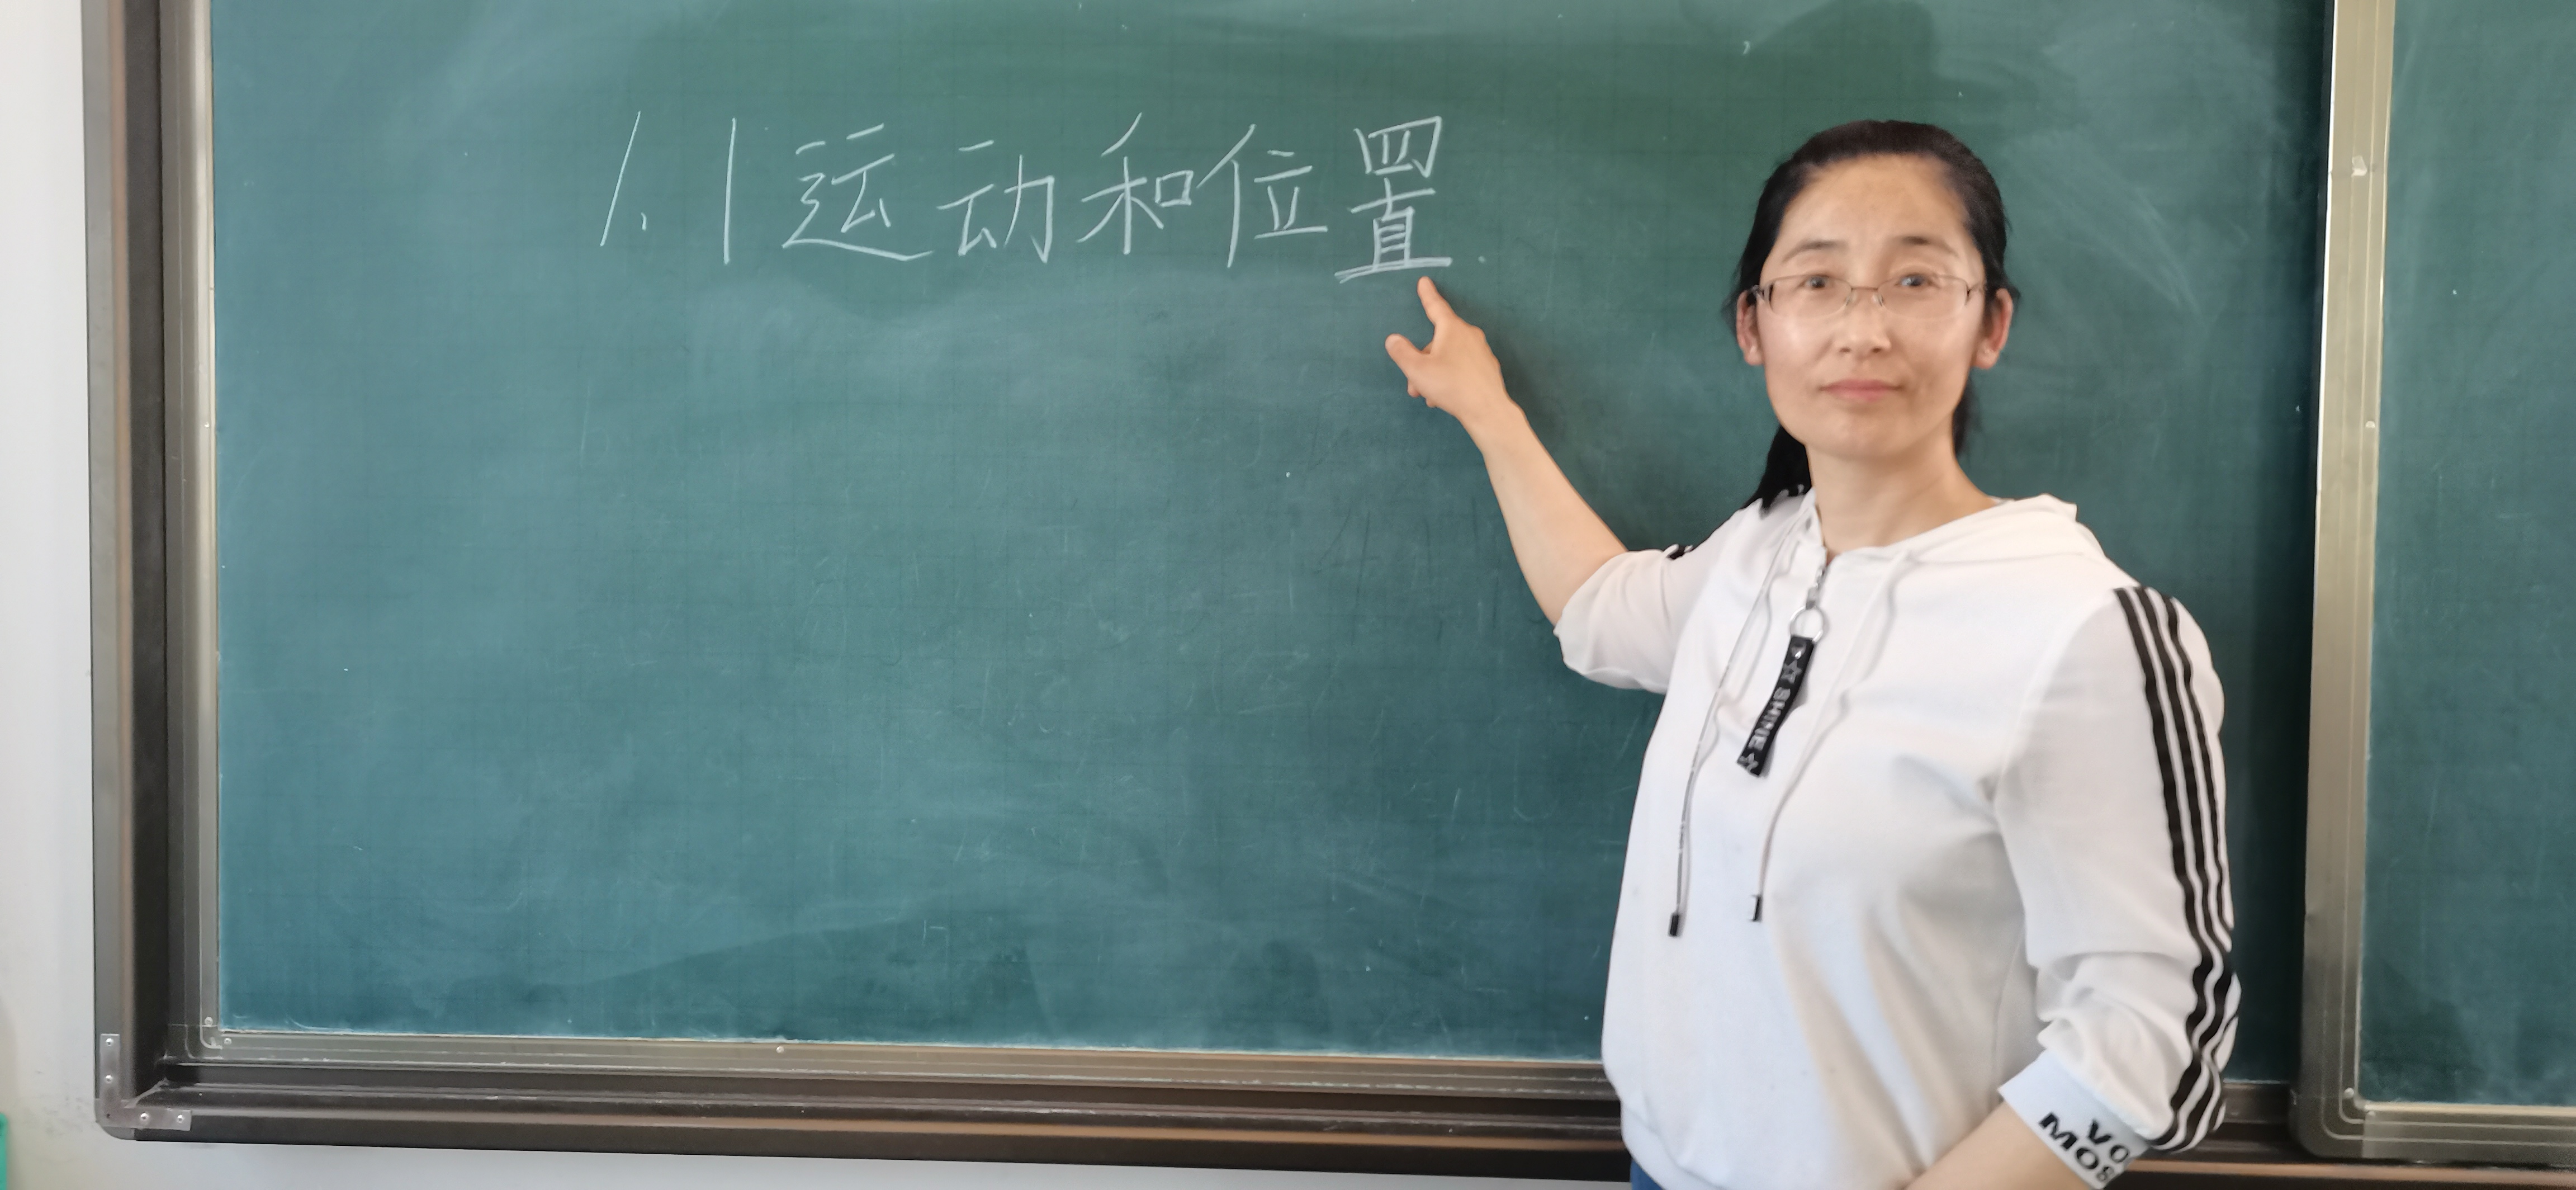 1.1运动和位置.
☆ SHINE ☆
VO
MOS